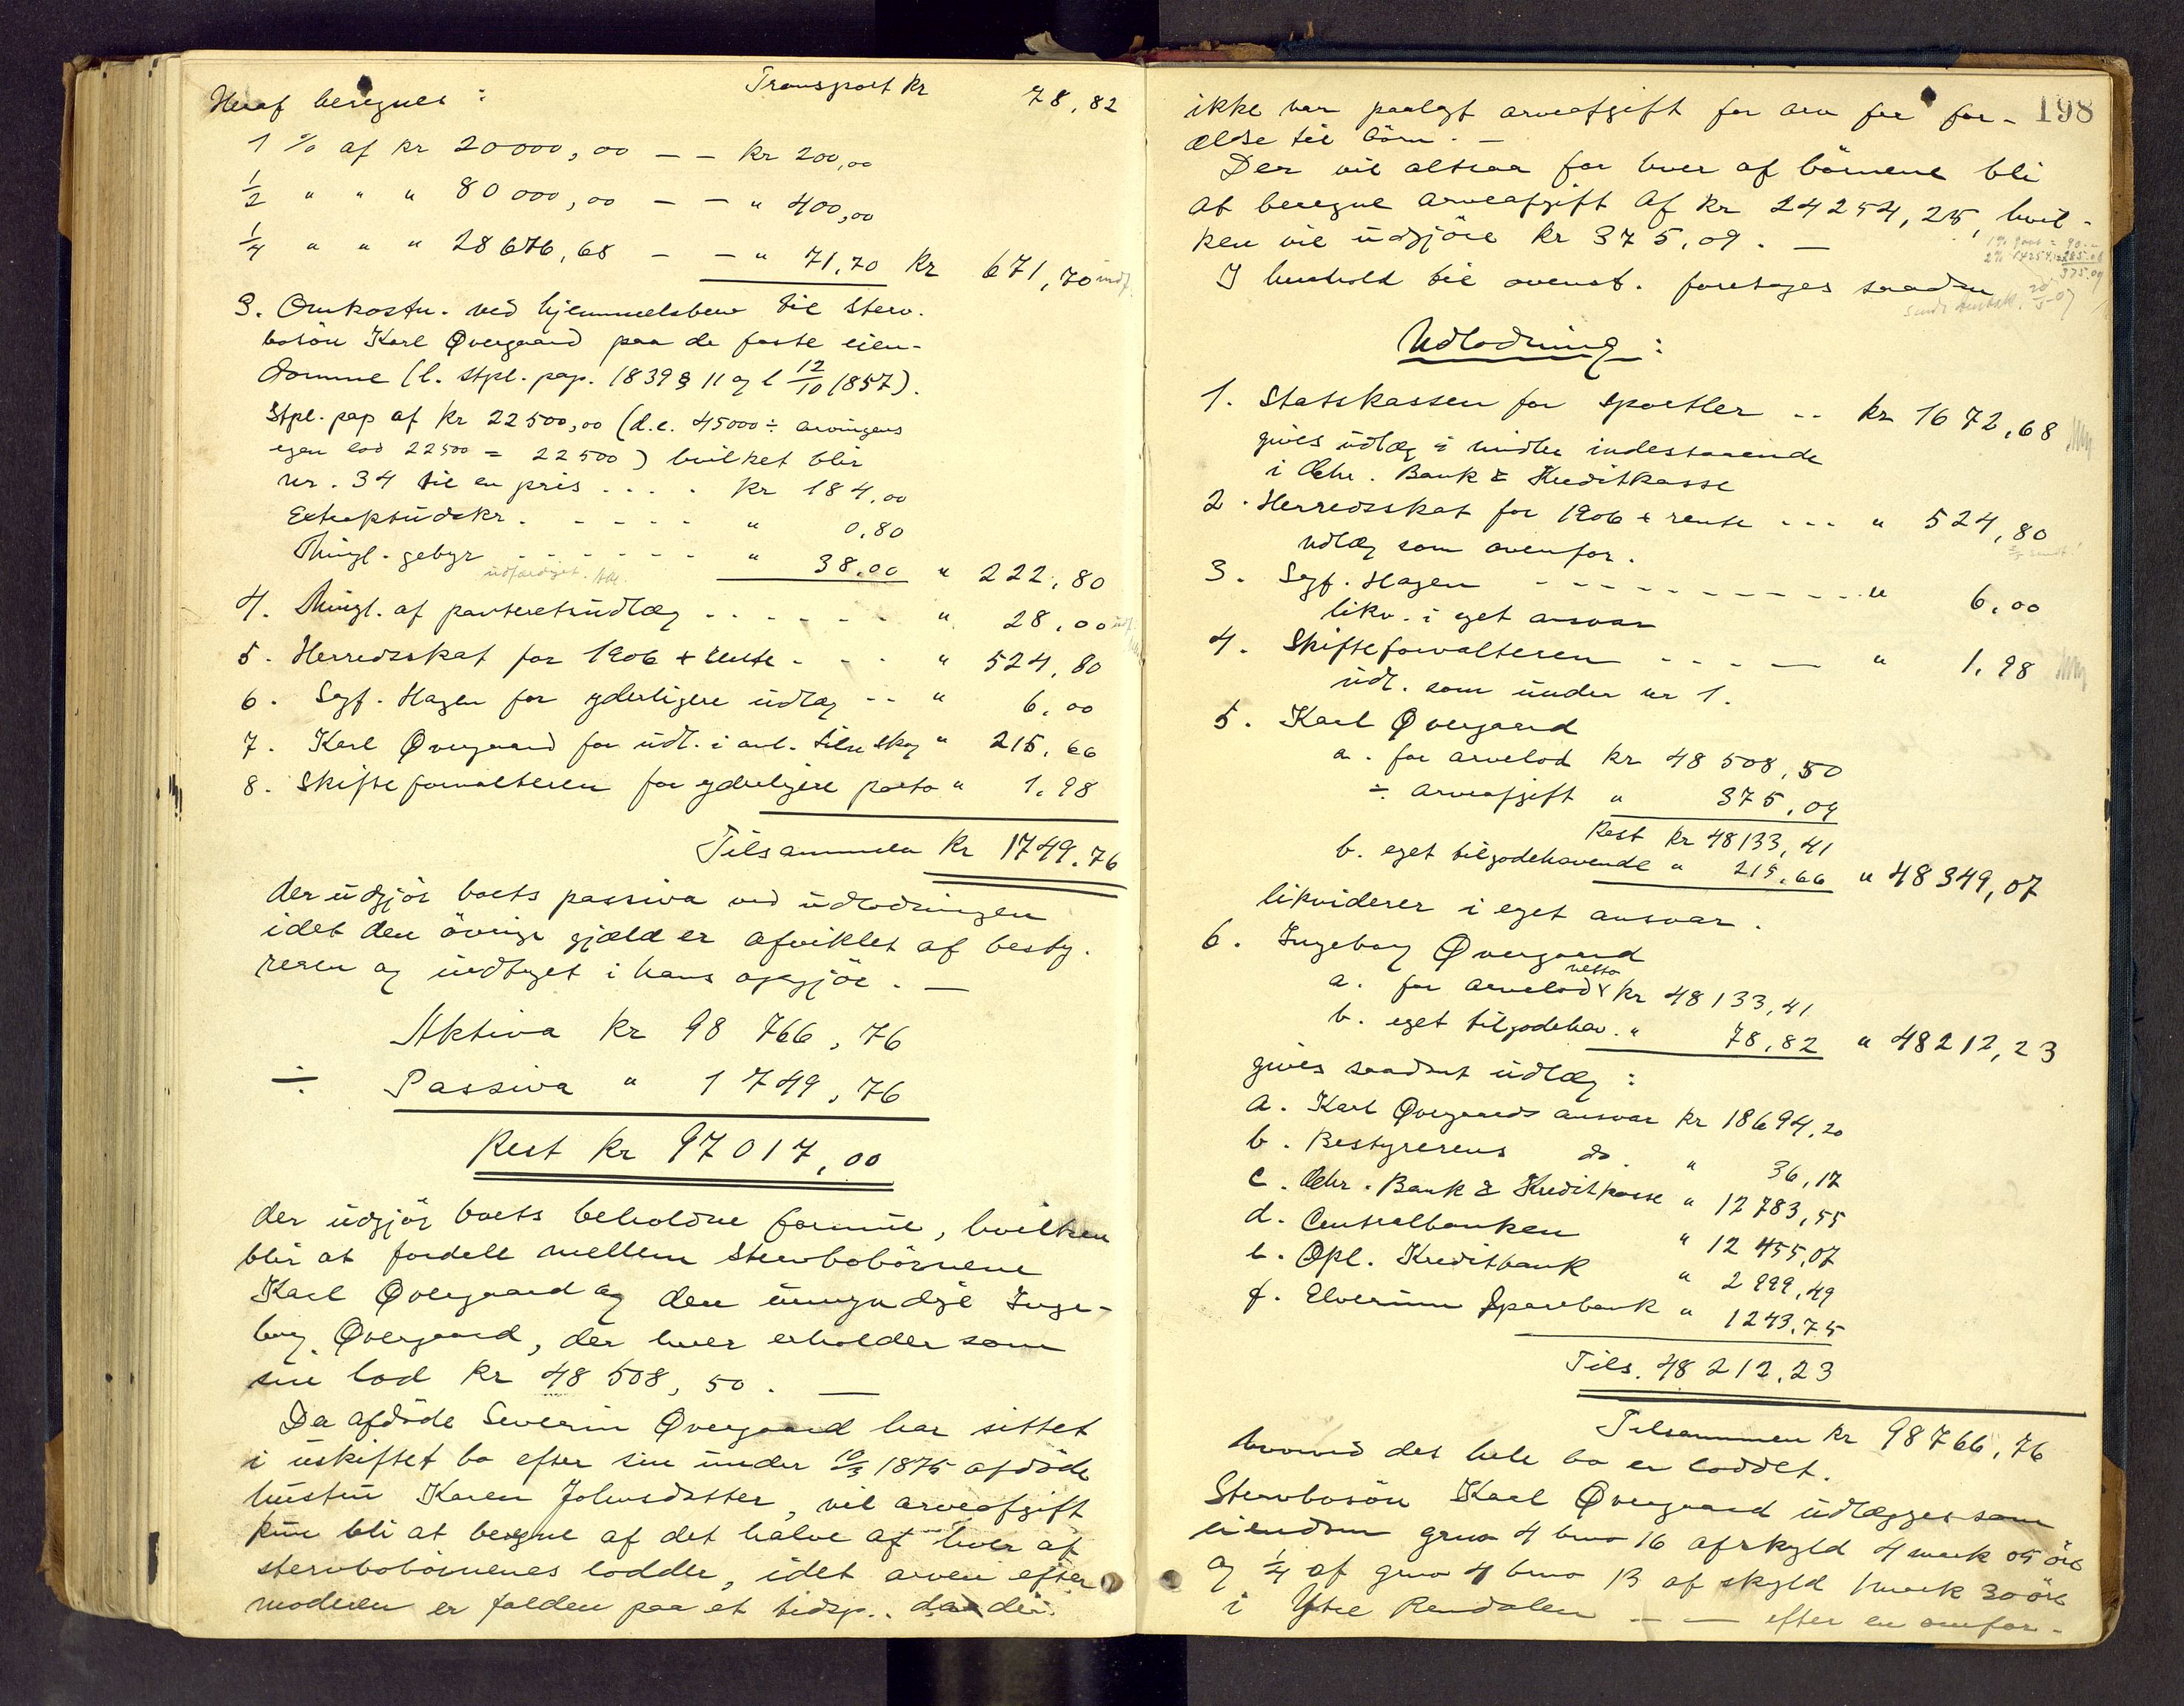 Transport Kr 78,82
Heraf beregnes :
1 % af Kr 20000,00 — — Kr 200,00
1/2 " " " 80000,00 — — " 400,00
1/4 " " " 28676,68 — — " 71,70 Kr 671,70 indf.
3. Omkostn. ved hjemmelsbrev til sterv-
bosön Karl Øvergaard paa de faste eien-
domme (l. stpl. pap. 1839 § 11 og l 12/10 1857).
Stpl. pap af Kr 22500,00 (d.e. 45000 ÷ arvingens
egen lod 22500 = 22500) hvilket blir
nr. 34 til en pris . . . . Kr 184,00
Extraktudskr. - - - - - " 0,80
Thingl. gebyr - - - - - - " 38.00 " 222,80
udfærdiget.
4. Thingl. af panteretsudlæg - - - - - - " 28,00 indf.
5. Herredsskat for 1906 + rente - - - " 524,80
6. Sagf. Hagen for yderligere udlæg -- " 6,00
7. Karl Øvergaard for udl. i anl. tilsu skog " 215,66
8. Skifteforvalteren for yderligere porto " 1,98
Tilsammen Kr 1749.76
der udgjör boets passiva ved udlodningen
idet den övrige gjæld er afviklet af besty-
reren og indtaget i hans opgjör. —
Aktiva Kr 98 766,76
÷ Passiva " 1 749,76
Rest Kr 97017,00
der udgjör boets beholdne formue, hvilken
blir at fordele mellem stervbobörnene
Karl Øvergaard og den umyndige Inge-
borg Øvergaard, der hver erholder som
sin lod Kr 48 508,50. —
Da afdöde Severin Øvergaard har sittet
i uskiftet bo efter sin under 10/3 1875 afdöde
hustru Karen Johnsdatter, vil arveafgift
kun bli at beregne af det halve af hver af
stervbobörnenes lodder, idet arven efter
moderen er falden paa et tidsp.. da der
198
ikke var paalagt arveafgift for arv fra for-
ældre til börn. —
Der vil altsaa for hver af börnene bli
at beregne arveafgift af Kr 24254,25, hvil-
ken vil udgjöre Kr 375,09. —
375.09
I henhold til ovenst. foretages saadan
Udlodning :
1. Statskassen for sportler -- Kr 1672,68
gives udlæg i midler indestaaende
i Chr. Bank & Kreditkasse
2. Herredsskat for 1906 + rente - - - " 524,80
udlæg som ovenfor.
3. Sagf. Hagen - - - - - - - - - - " 6,00
likv. i eget ansvar
4. Skifteforvalteren - - - - — " 1,98
udl. som under nr 1.
5. Karl Øvergaard
a. for arvelod Kr 48 508,50
÷ arveafgift " 375,09
Rest Kr 48133,41
b. eget tilgodehavende " 215,66 " 48349,07
likviderer i eget ansvar.
6. Ingeborg Øvergaard
netto
a. for arvelod Kr 48133,41
b. eget tilgodehav. " 78,82 " 48212,23
gives saadant udlæg :
a. Karl Øvergaards ansvar Kr 18694,20
b. Bestyrerens do. " 36,17
c. Chr. Bank & Kreditkasse " 12783,55
d. Centralbanken " 12455,07
e. Opl. Kreditbank " 2999,49
f. Elverum Sparebank " 1243,75
Tils. 48212,23
Tilsammen Kr 98766,76
hvorved det hele bo er loddet.
Stervbosön Karl Øvergaard udlægges som
eiendom gno 4 bno 16 afskyld 4 mark 05 öre
og 1/4 af gno 4 bno 13 af skyld 1 mark 30 öre
i Ytre Rendalen — — efter en omfor-